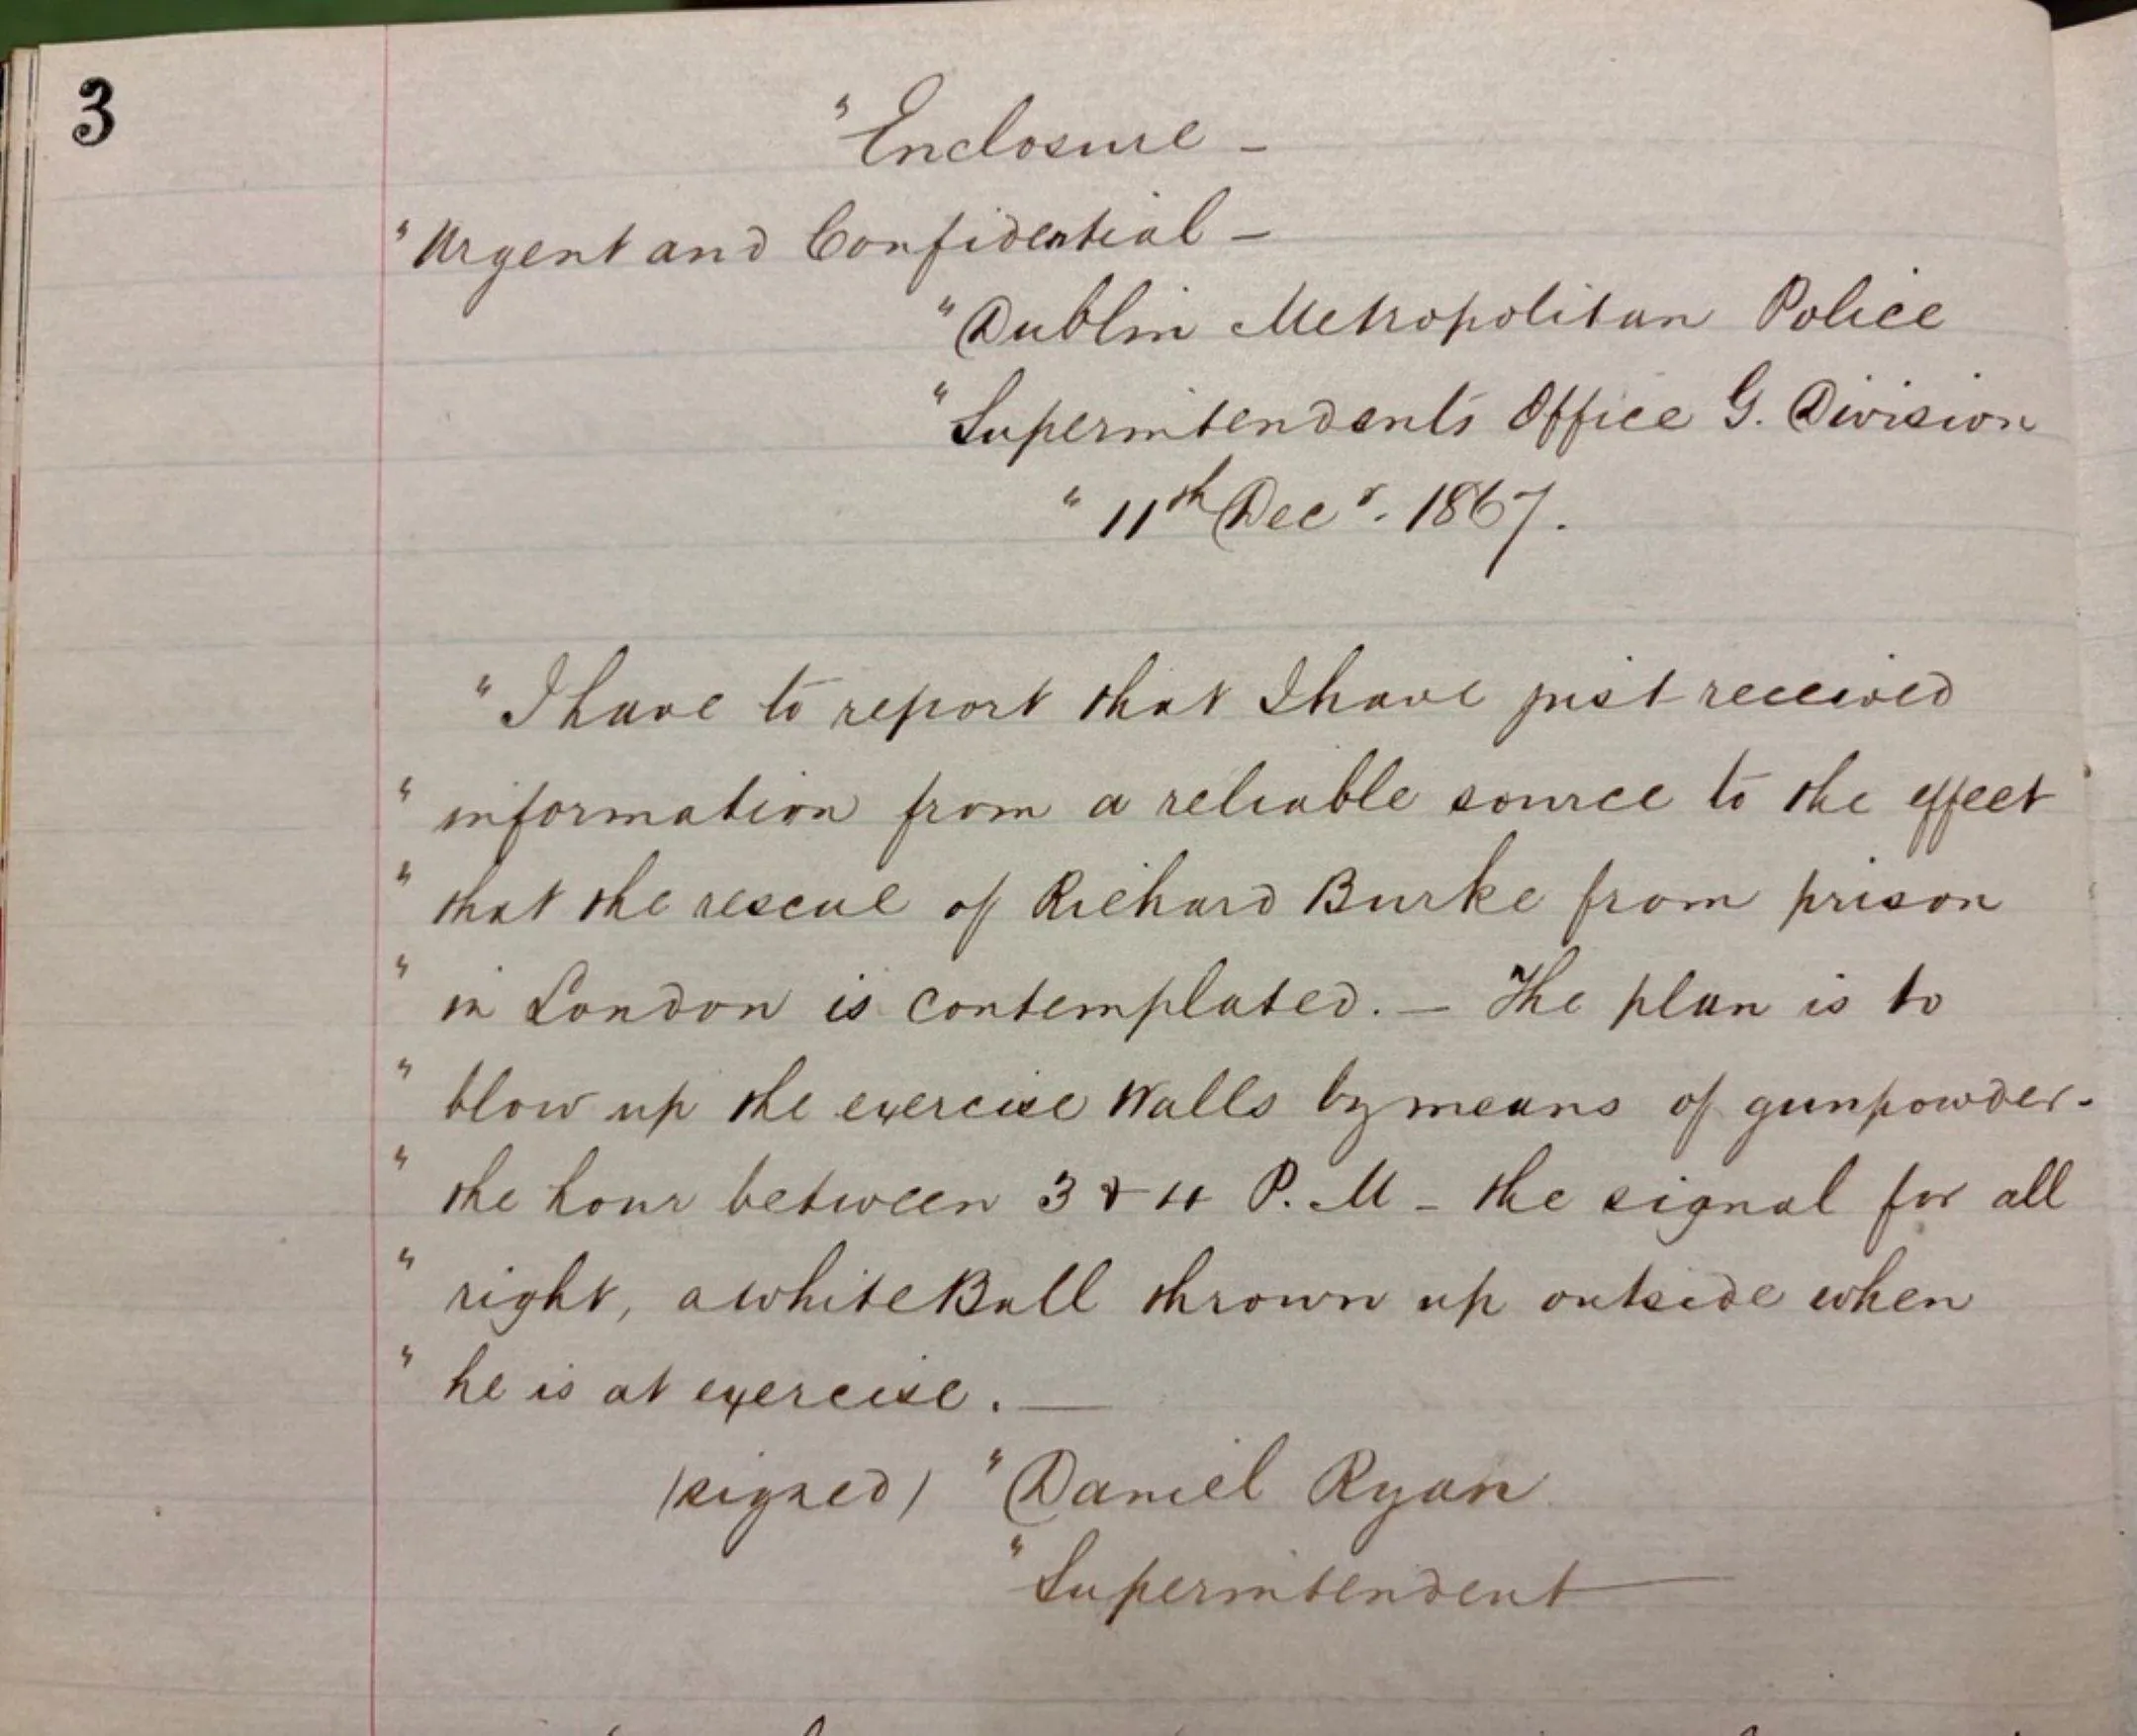 3
"Enclosure –
"Urgent and Confidential –
"Dublin Metropolitan Police
"Superintendents Office G. Division
" 11th Decr. 1867.
"I have to report that I have just received
" information from a reliable source to the effect
" that the rescue of Richard Burke from prison
" in London is contemplated. – The plan is to
" blow up the exercise Walls by means of gunpowder –
" the hour between 3 & 4 P. M – the signal for all
" right, a white Ball thrown up outside when
" he is at exercise. —
/signed/ "Daniel Ryan
"Superintendent —